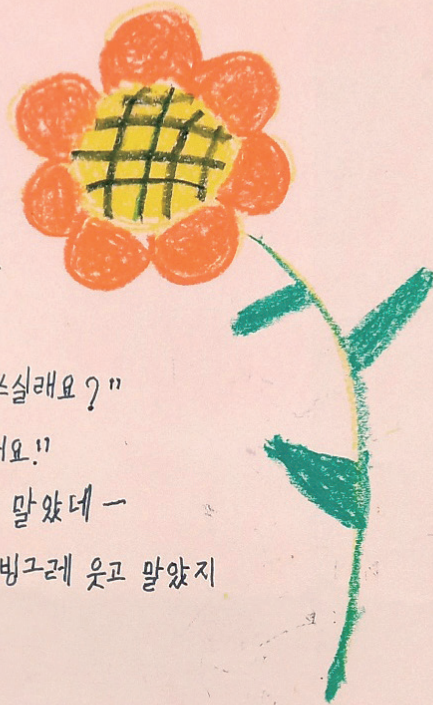 쓰실래요?"
요!!
말았데 —
빙그레 웃고 말았지